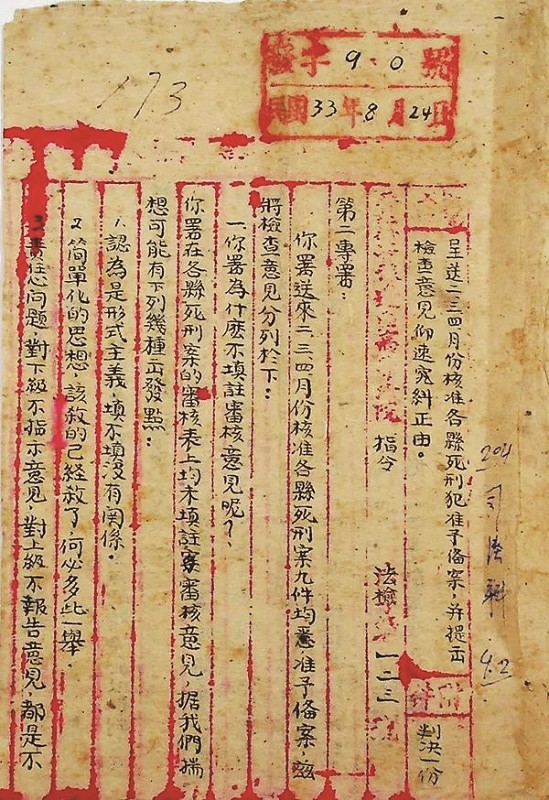 字 9 0 號
民國33年8月24日
173
呈送二三四月份核准各縣死刑犯准予备案,并提出
檢查意見仰速究糾正由。
附件
判決一份
指令
法檢 一二三
第二專署:
你署送來二.三.四月份核准各縣死刑案九件均悉准予备案,兹
將檢查意見分列於下:
一.你署為什麽不填註審核意見呢?
你署在各縣死刑案的審核表上均未填註審核意見,据我們揣
想可能有下列幾種出發點:
1.認為是形式主義,填不填沒有関係.
2簡單化的思想,該敘的已經敘了,何必多此一舉.
3責任心問題,對下級不指示意見,對上級不報告意見,都是不
204
司法科
9.2